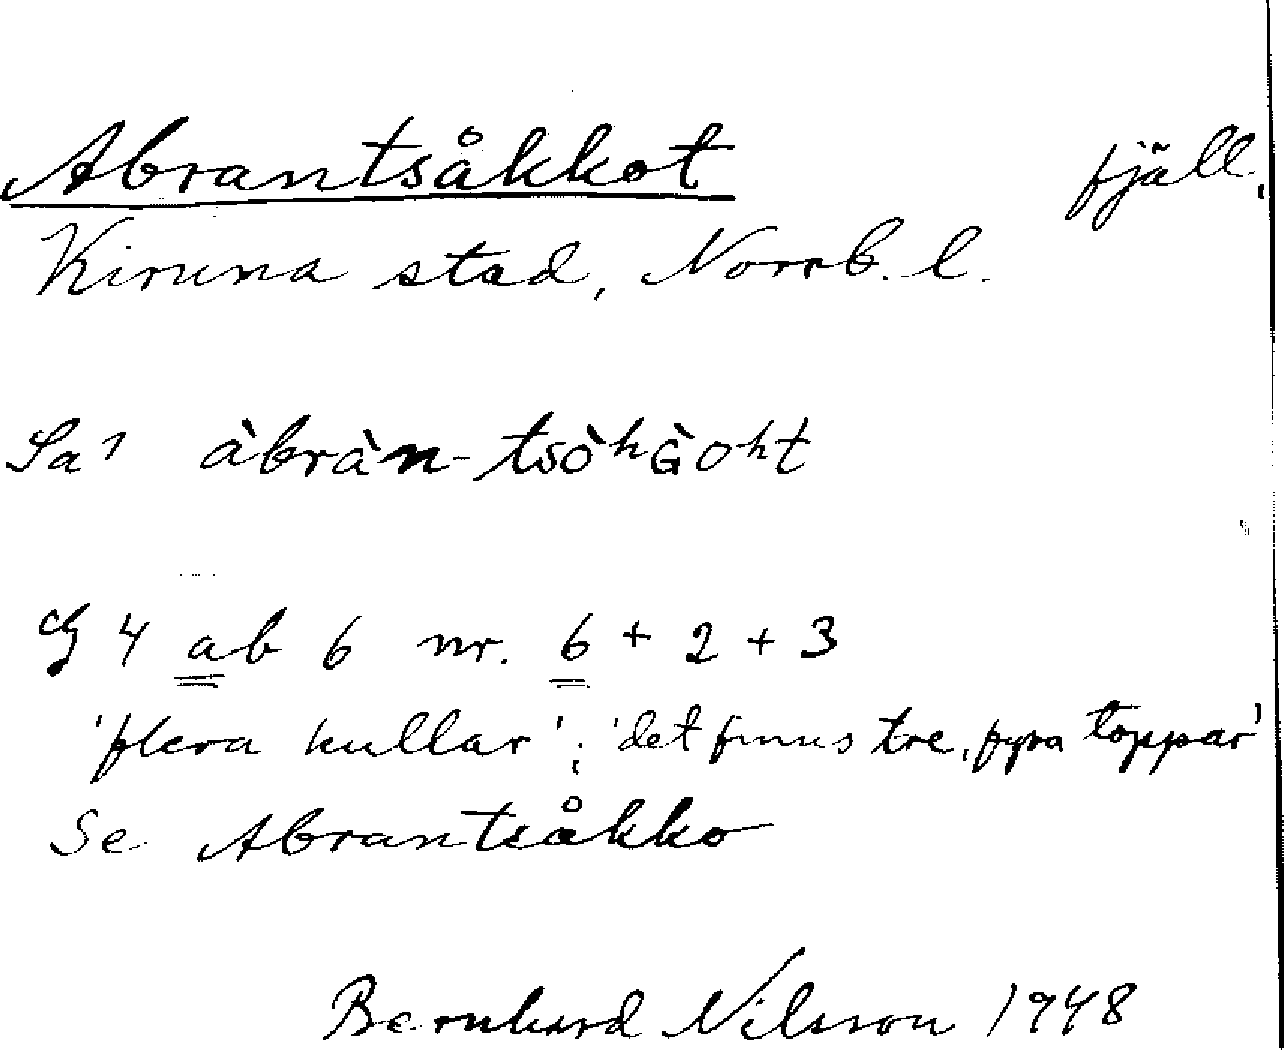 Abrantsåkkot fjäll.
Kiruna stad, Norrb. l.
Sa1 àbràn-tsòʰG̀oʰt
G 4 ab 6 nr. 6 + 2 + 3
'flera kullar'; 'det finns tre, fyra toppar'
Se Abrantsåkko
Bernhard Nilsson 1948